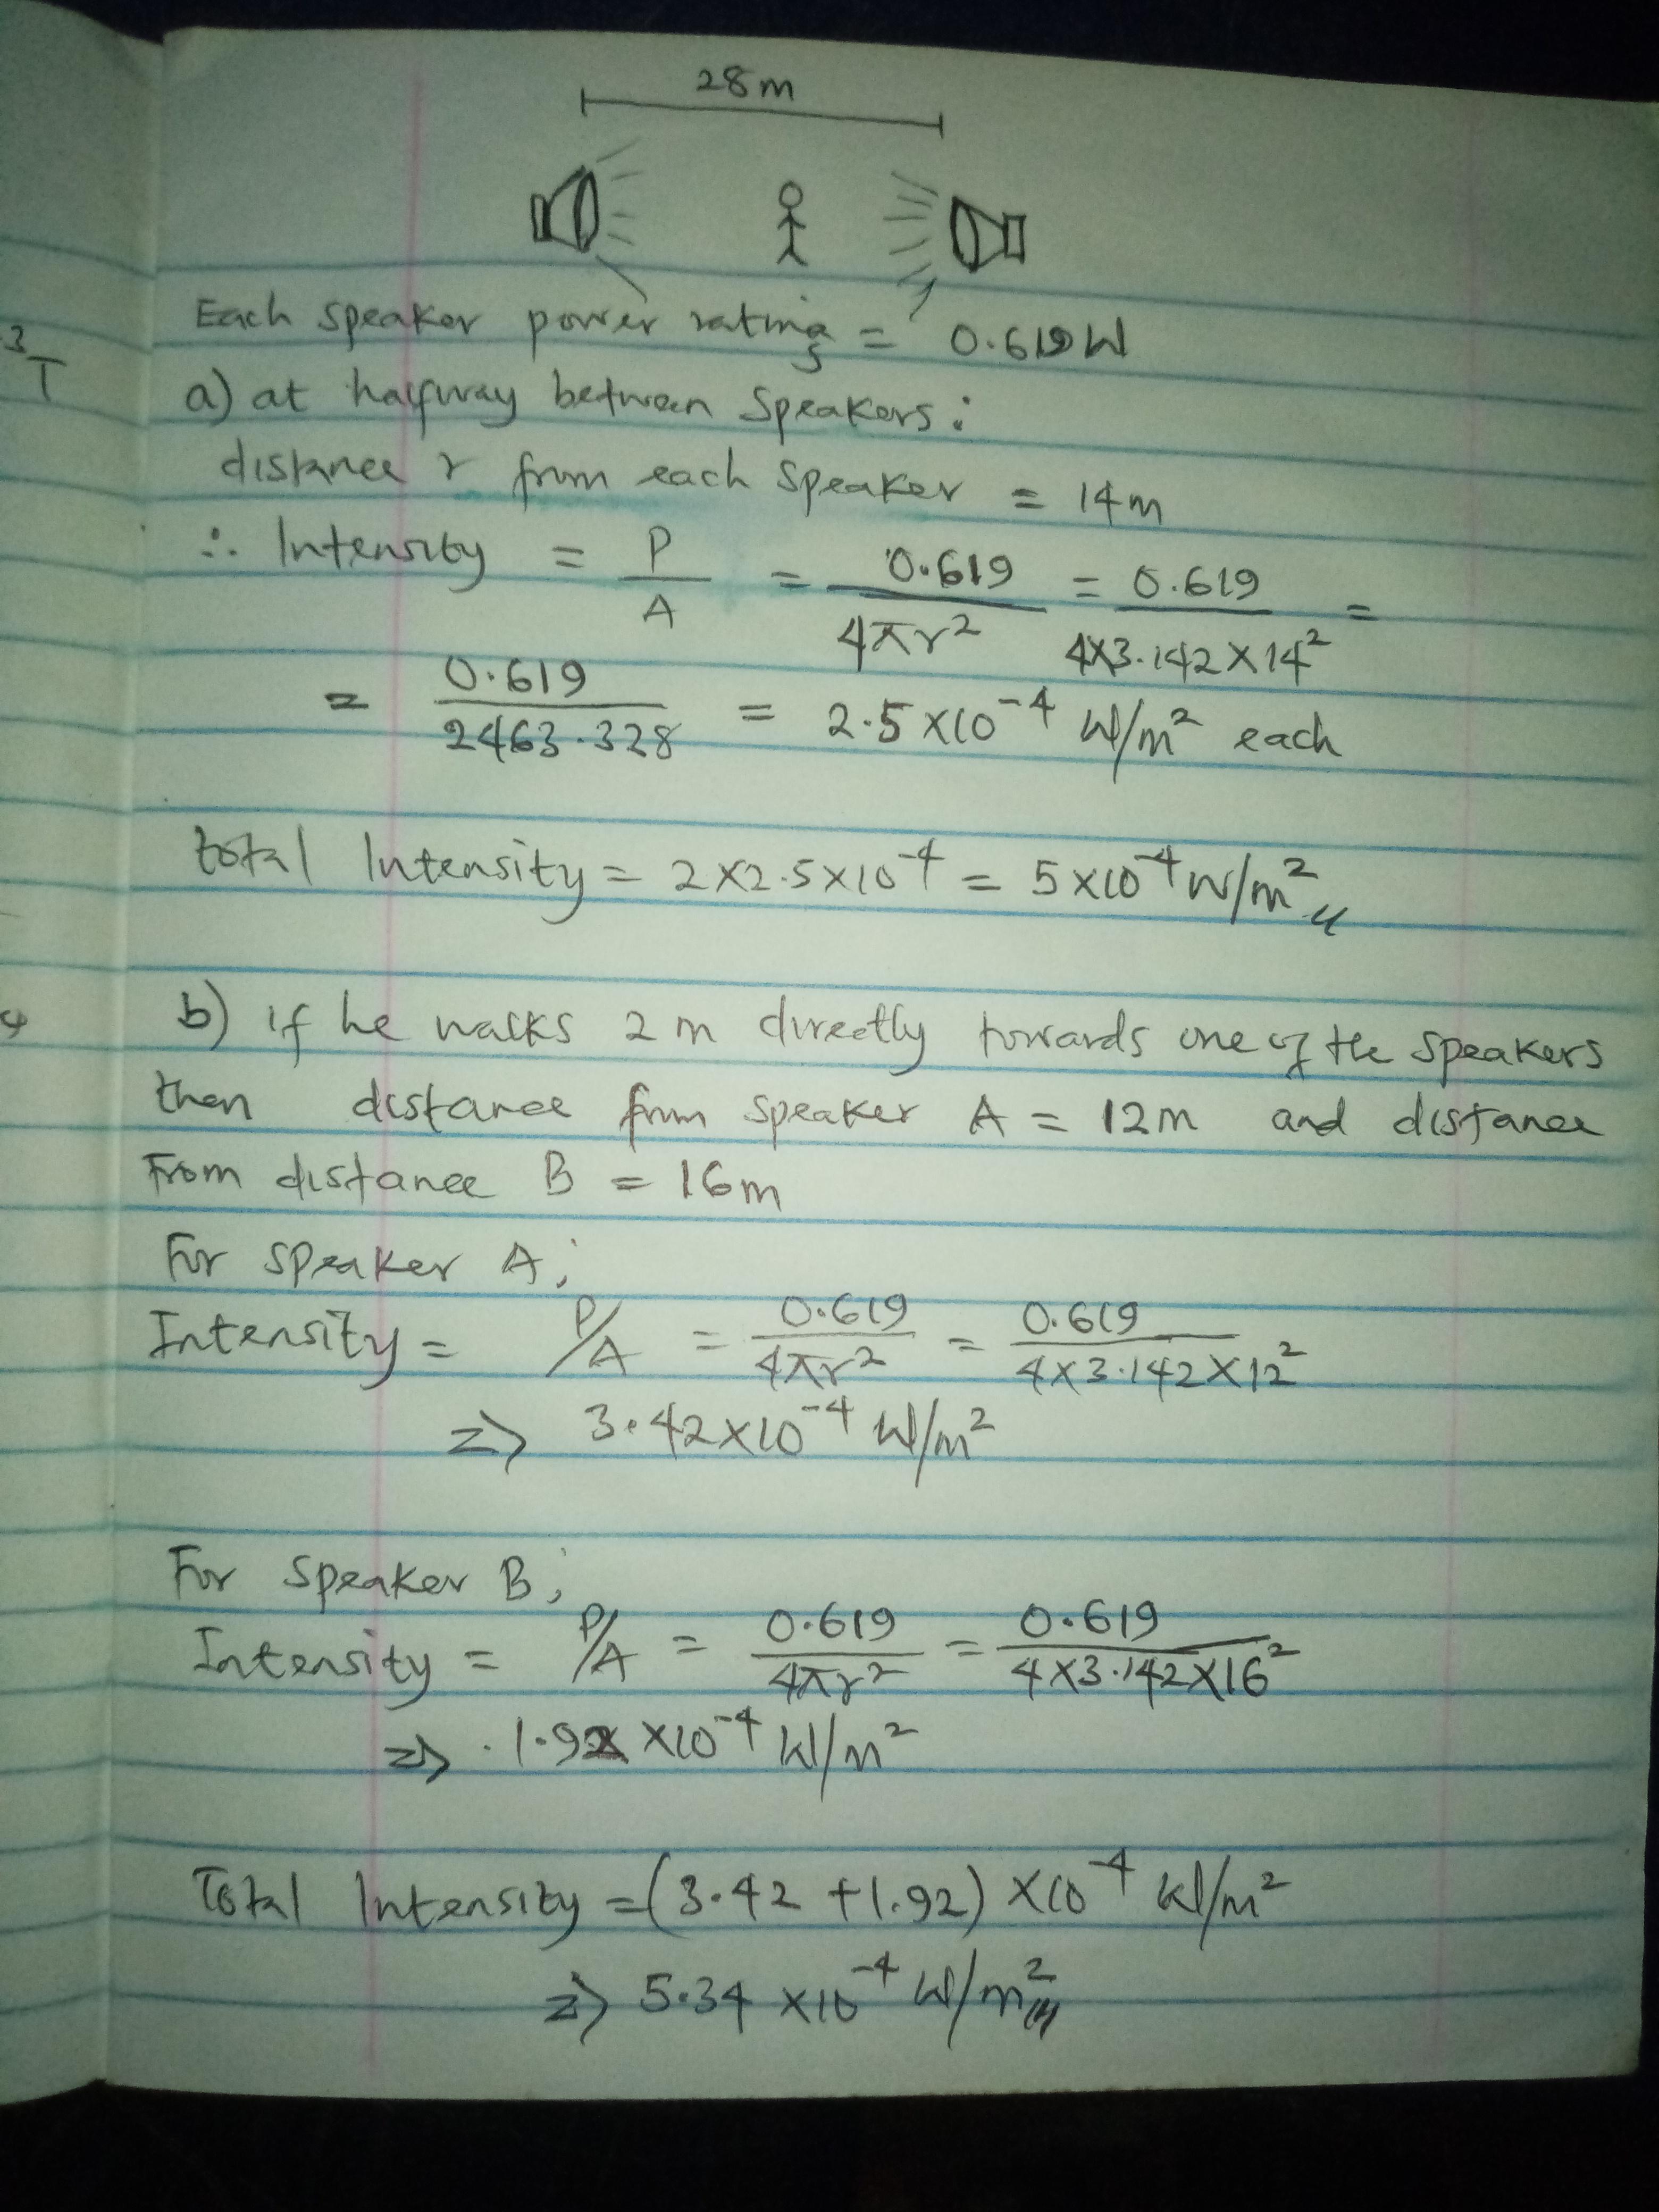 28m
Each speaker power rating = 0.619W
3
T
a) at halfway between speakers:
distance r from each speaker = 14m
∴ Intensity = P/A = 0.619/4πr² = 0.619/4×3.142×14² =
= 0.619/2463.328 = 2.5×10⁻⁴ W/m² each
total Intensity = 2×2.5×10⁻⁴ = 5×10⁻⁴ W/m²
b) if he walks 2m directly towards one of the speakers
then distance from speaker A = 12m and distance
From distance B = 16m
For speaker A;
Intensity = P/A = 0.619/4πr² = 0.619/4×3.142×12²
=> 3.42×10⁻⁴ W/m²
For speaker B;
Intensity = P/A = 0.619/4πr² = 0.619/4×3.142×16²
=> 1.92×10⁻⁴ W/m²
Total Intensity = (3.42+1.92)×10⁻⁴ W/m²
=> 5.34×10⁻⁴ W/m²